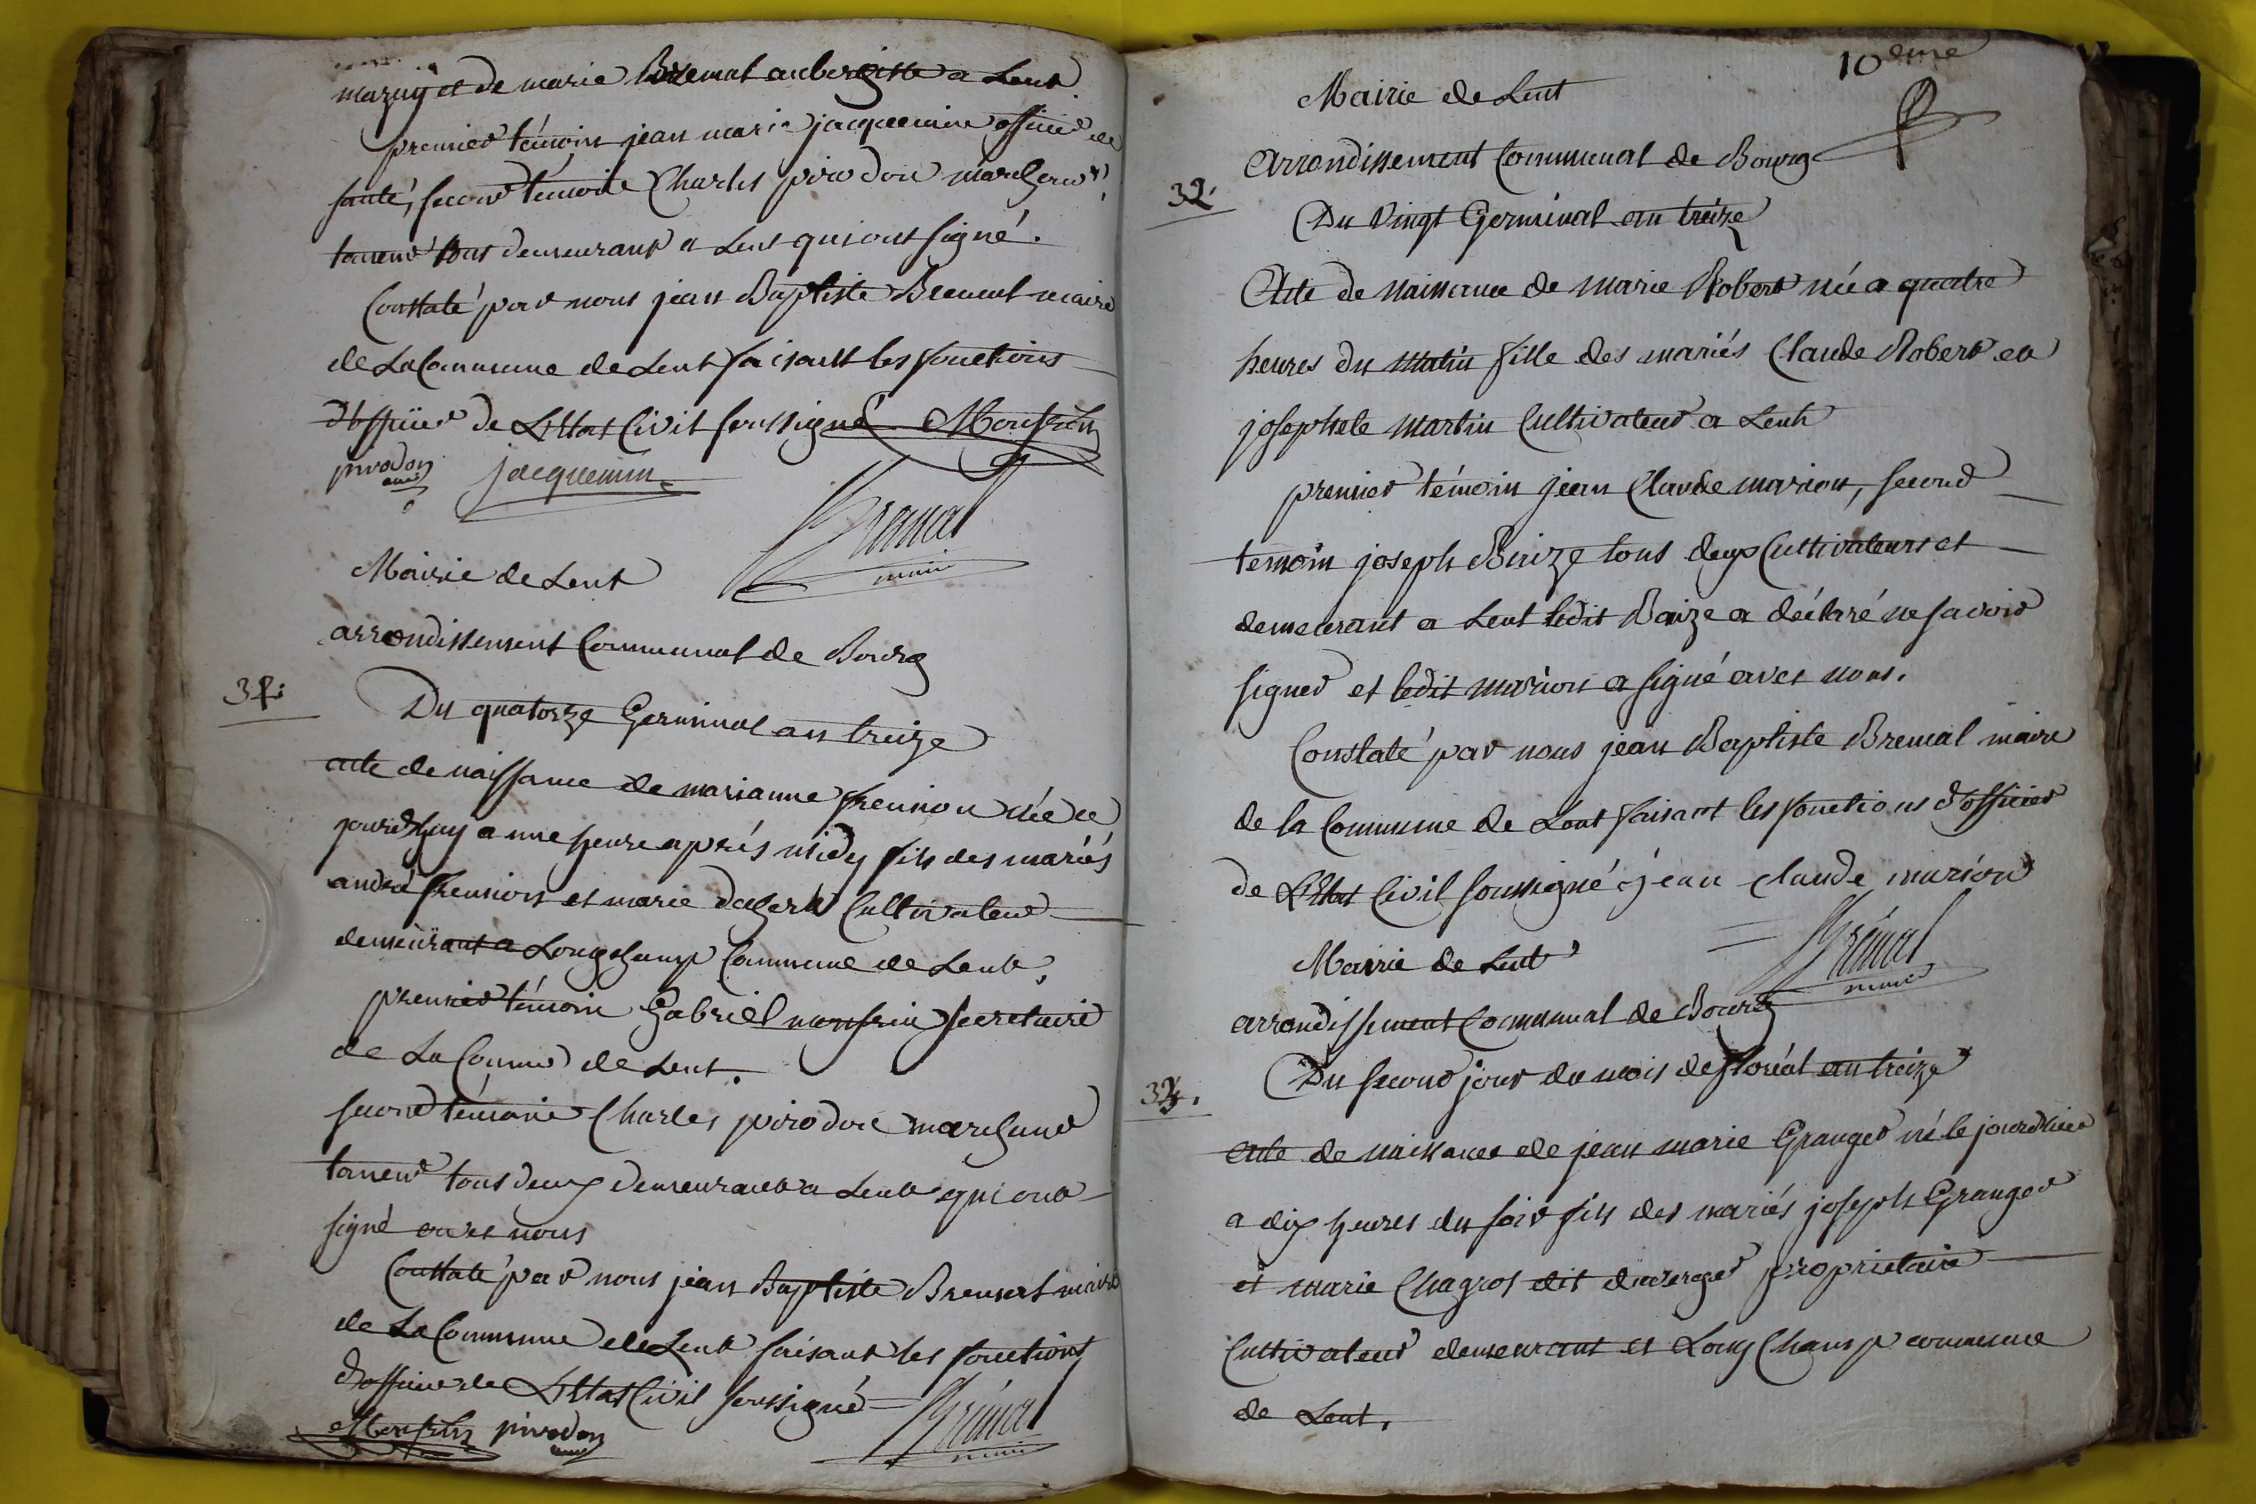 mazuy et de marie Bremal aubergiste a Lent
premier témoin jean marie jacquemin officier de
santé, second témoin Charles pirodon marchand
taneur tous demeurant a Lent qui ont signé.
Constaté par nous jean Baptiste Bremal maire
de La Commune de Lent faisant les fonctions
d'officier de L'Etat Civil soussigné Monfrin
pirodon jacquemin
Bremal
maire
Mairie de Lent
arrondissement Communal de Bourg
31.
Du quatorze Germinal an treize
acte de naissance de marianne née ce
jourdhuy a une heure aprés midy fils des mariés
andré et marie Cultivateur
demeurant a Longchamp Commune de Lent,
premier témoin Gabriel monfrin secretaire
de La Commune de Lent.
second témoin Charles pirodon marchand
taneur tous deux demeurant a Lent qui ont
signé avec nous
Constaté par nous jean Baptiste Bremal maire
de La Commune de Lent faisant les fonctions
d'officier de L'Etat Civil soussigné
Monfrin pirodon
Brémal
maire
10eme
Mairie de Lent
arrondissement Communal de Bourg
32.
Du Vingt Germinal an treize
Acte de naissance de marie Robert née a quatre
heures du matin fille des mariés Claude Robert et
josephete martin Cultivateur a Lent
premier témoin jean Claude marion, second
temoin joseph Baize tous deux Cultivateurs et
demeurant a Lent ledit Baize a déclaré ne savoir
signer et ledit marion a signé avec nous.
Constaté par nous jean Baptiste Bremal maire
de la Commune de Lent faisant les fonctions d'officier
de L'Etat Civil soussigné jean claude marion
Brémal
maire
Mairie de Lent
arrondissement Communal de Bourg
33.
Du second jour du mois de floréal an treize
acte de naissance de jean marie Granger né le jourdhier
a dix heures du soir fils des mariés joseph Granger
et marie Chagros dit duverger proprietaire
Cultivateur demeurant et Long Champ commune
de Lent.